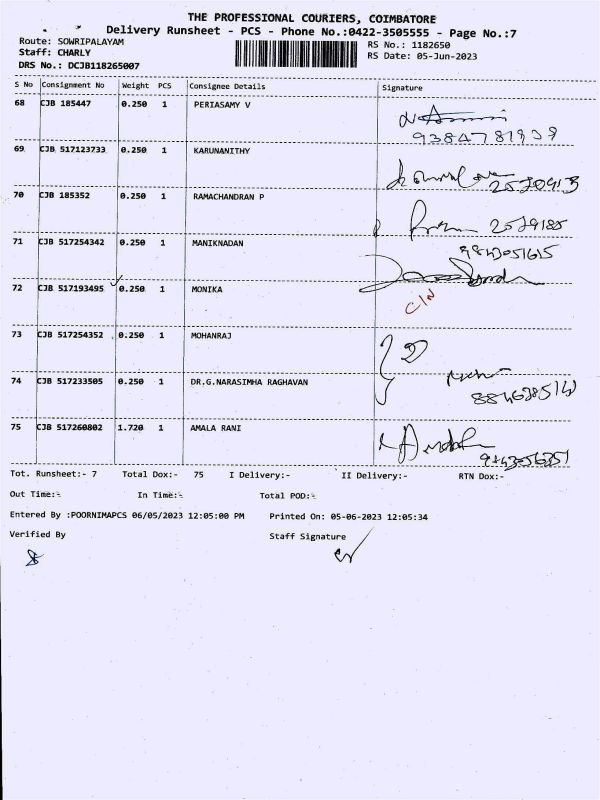 THE PROFESSIONAL COURIERS, COIMBATORE
Delivery Runsheet - PCS - Phone No.:0422-3505555 - Page No.:7
Route: SOWRIPALAYAM
Staff: CHARLY
DRS No.: DCJB118265007
RS No.: 1182650
RS Date: 05-Jun-2023
S No Consignment No Weight PCS Consignee Details Signature
68 CJB 185447 0.250 1 PERIASAMY V
9384781838
69 CJB 517123733 0.250 1 KARUNANITHY
2570913
70 CJB 185352 0.250 1 RAMACHANDRAN P
2579185
71 CJB 517254342 0.250 1 MANIKNADAN
9843051615
72 CJB 517193495 0.250 1 MONIKA
C/N
73 CJB 517254352 0.250 1 MOHANRAJ
74 CJB 517233505 0.250 1 DR.G.NARASIMHA RAGHAVAN
75 CJB 517260802 1.720 1 AMALA RANI
Tot. Runsheet:- 7 Total Dox:- 75 I Delivery:- II Delivery:- RTN Dox:-
Out Time:- In Time:- Total POD:-
Entered By :POORNIMAPCS 06/05/2023 12:05:00 PM Printed On: 05-06-2023 12:05:34
Verified By Staff Signature